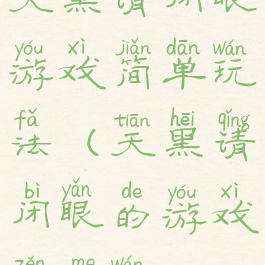 天黑请闭眼
yóu xì jiǎn dān wán
游戏简单玩
fǎ tiān hēi qǐng
法（天黑请
bì yǎn de yóu xì
闭眼的游戏
zěn me wán